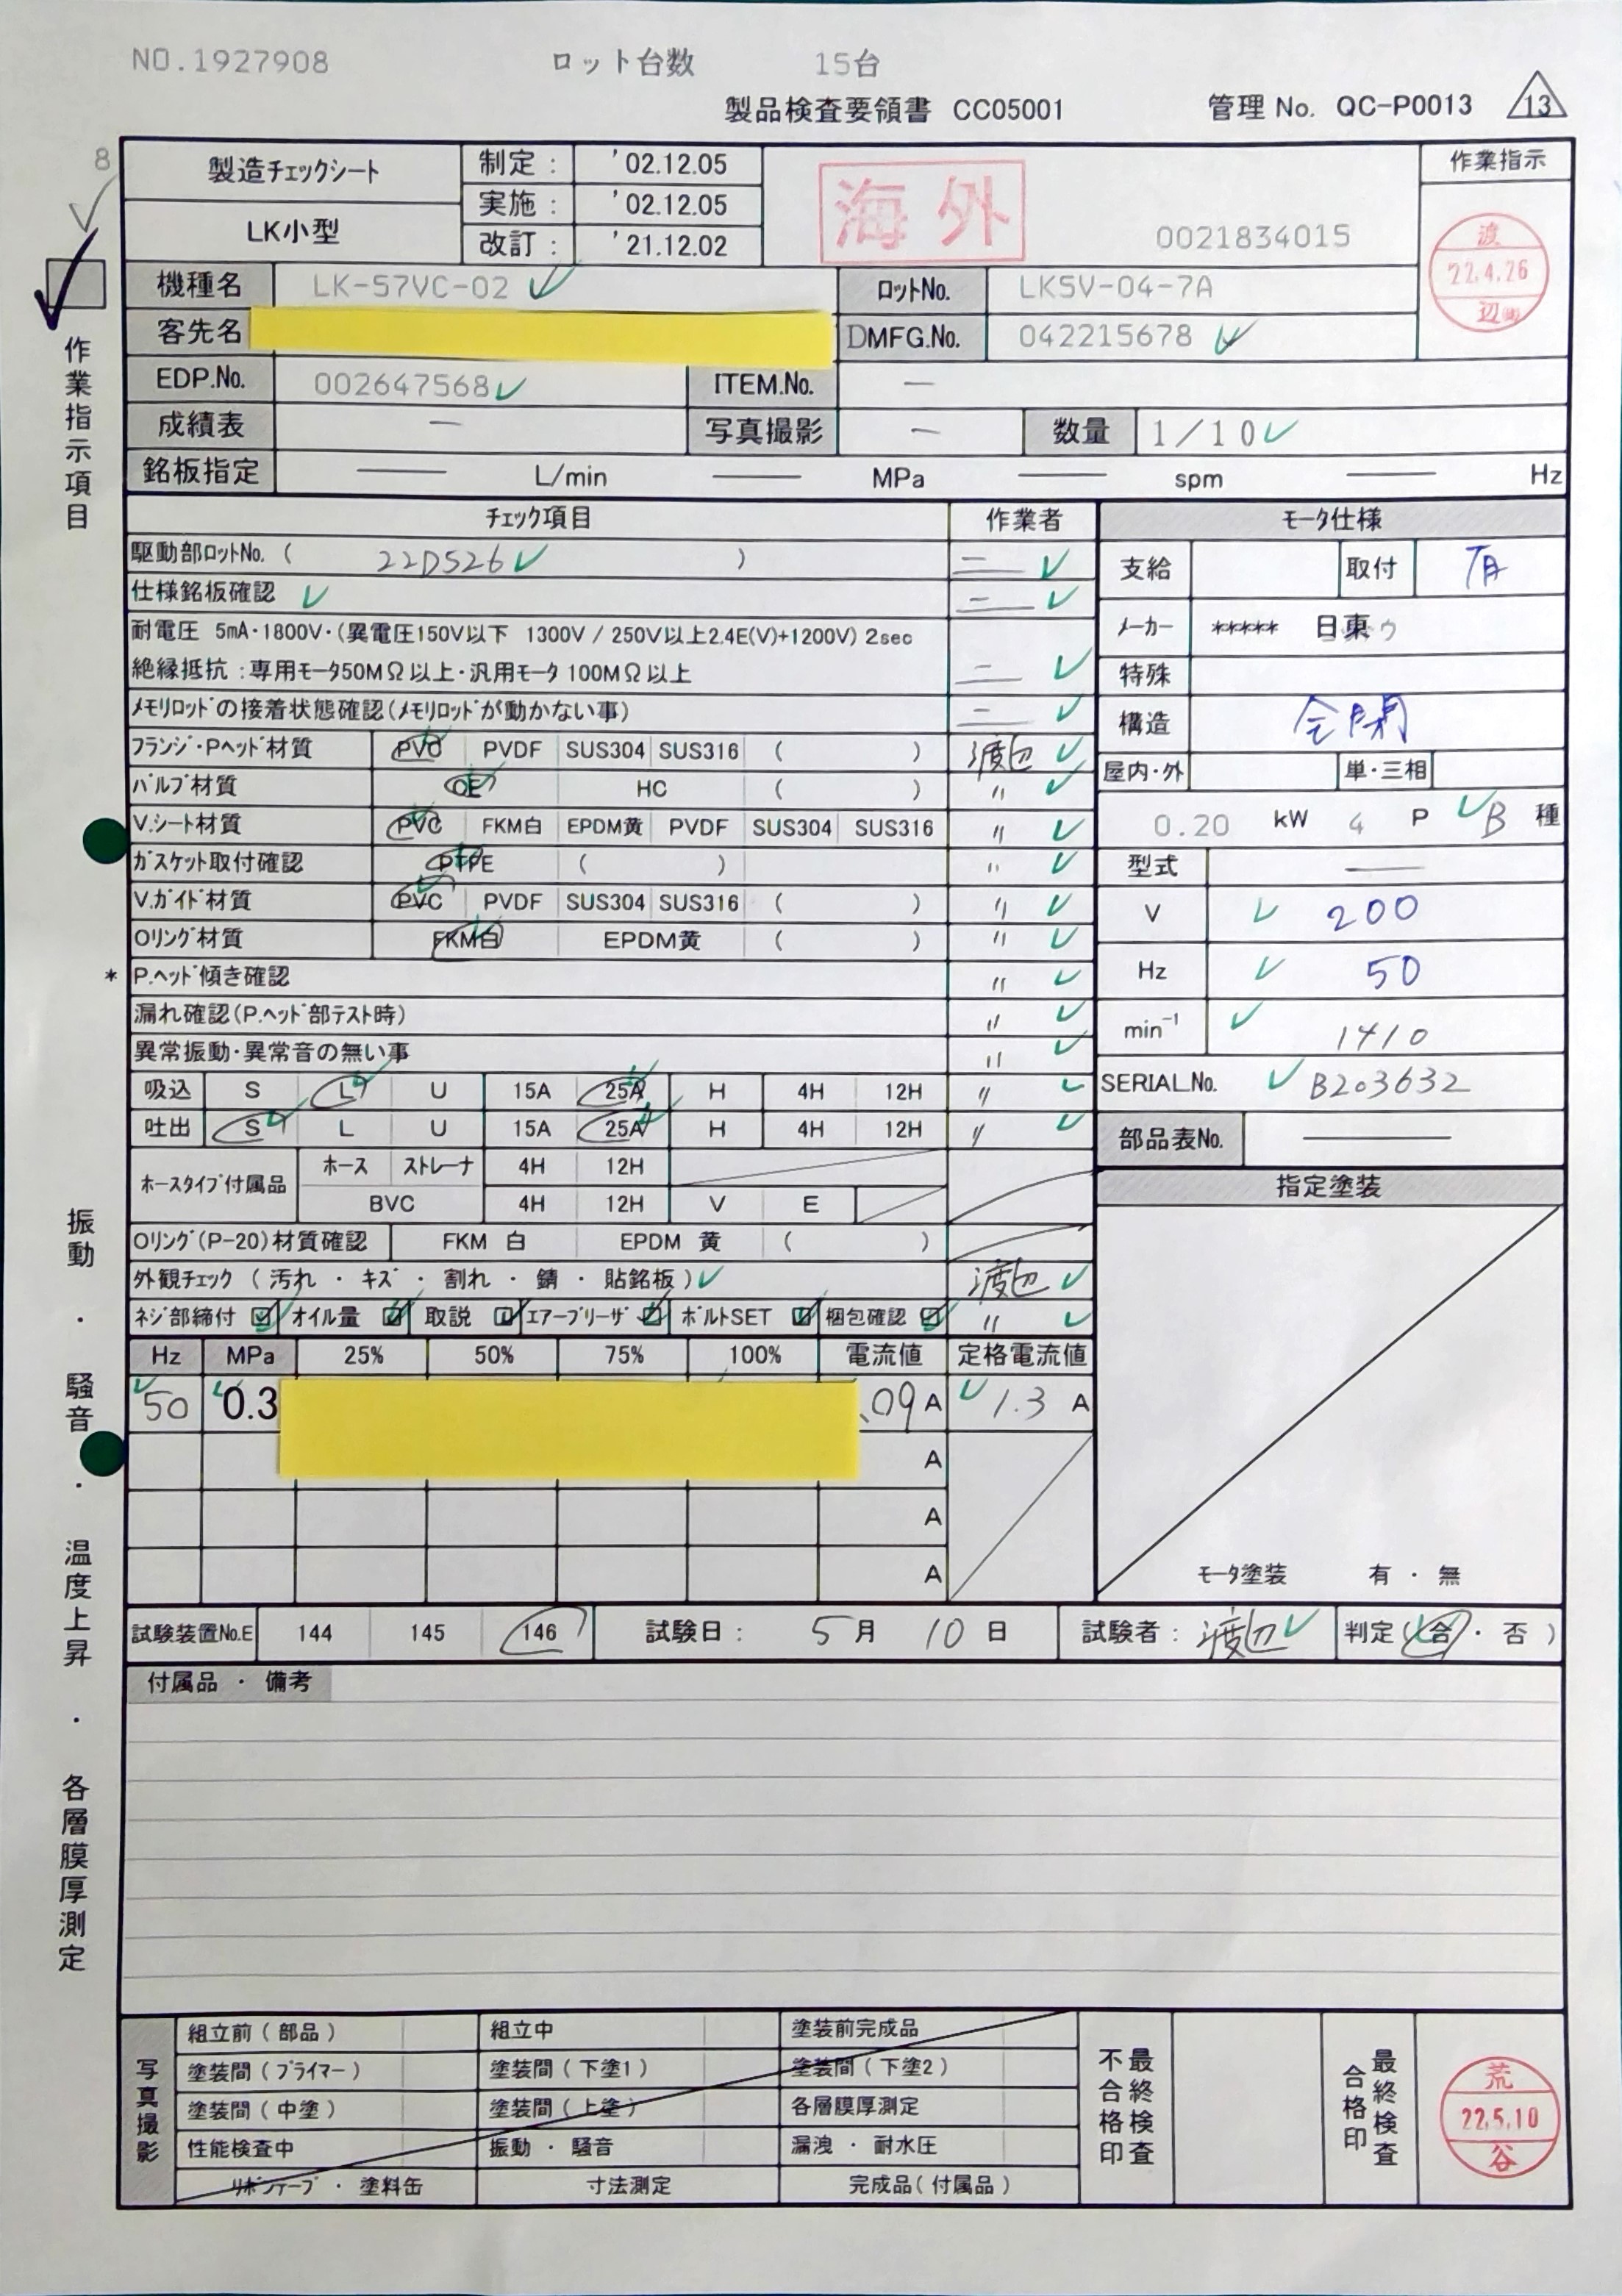 NO.1927908 ロット台数 15台
製品検査要領書 CC05001 管理 No. QC-P0013 13
8
製造チェックシート 制定： '02.12.05 作業指示
LK小型 実施： '02.12.05
改訂： '21.12.02
海外 0021834015
渡 22.4.26 辺
機種名 LK-57VC-02 ロットNo. LK5V-04-7A
客先名 DMFG.No. 042215678
EDP.No. 002647568 ITEM.No. —
成績表 — 写真撮影 — 数量 1/10
銘板指定 — L/min — MPa — spm — Hz
作業指示項目
振動・騒音・温度上昇・各層膜厚測定
チェック項目 作業者
駆動部ロットNo. ( 22D526 ) 二
仕様銘板確認 二
耐電圧 5mA・1800V・(異電圧150V以下 1300V / 250V以上2.4E(V)+1200V) 2sec
絶縁抵抗：専用モータ50MΩ以上・汎用モータ100MΩ以上 二
メモリロッドの接着状態確認(メモリロッドが動かない事) 二
フランジ・Pヘッド材質 PVC PVDF SUS304 SUS316 ( ) 渡辺
バルブ材質 CE HC ( ) 〃
V.シート材質 PVC FKM白 EPDM黄 PVDF SUS304 SUS316 〃
ガスケット取付確認 PTFE ( ) 〃
V.ガイド材質 PVC PVDF SUS304 SUS316 ( ) 〃
Oリング材質 FKM白 EPDM黄 ( ) 〃
* P.ヘッド傾き確認 〃
漏れ確認(P.ヘッド部テスト時) 〃
異常振動・異常音の無い事 〃
吸込 S L U 15A 25A H 4H 12H 〃
吐出 S L U 15A 25A H 4H 12H 〃
ホースタイプ付属品 ホース ストレーナ 4H 12H
BVC 4H 12H V E
Oリング(P-20)材質確認 FKM 白 EPDM 黄 ( )
外観チェック (汚れ ・ キズ ・ 割れ ・ 錆 ・ 貼銘板) 渡辺
ネジ部締付 オイル量 取説 エアーブリーザ ボルトSET 梱包確認 〃
モータ仕様
支給 取付 有
メーカー ***** 日東
特殊
構造 全閉
屋内・外 単・三相
0.20 kW 4 P B 種
型式 —
V 200
Hz 50
min⁻¹ 1410
SERIAL.No. B203632
部品表No. —
指定塗装
モータ塗装 有 ・ 無
Hz MPa 25% 50% 75% 100% 電流値 定格電流値
50 0.3 .09 A 1.3 A
A
A
A
試験装置No.E 144 145 146 試験日： 5 月 10 日 試験者： 渡辺 判定(合・否)
付属品 ・ 備考
写真撮影
組立前 ( 部品 ) 組立中 塗装前完成品
塗装間 ( プライマー ) 塗装間 ( 下塗1 ) 塗装間 ( 下塗2 )
塗装間 ( 中塗 ) 塗装間 ( 上塗 ) 各層膜厚測定
性能検査中 振動 ・ 騒音 漏洩 ・ 耐水圧
リボンテープ ・ 塗料缶 寸法測定 完成品 ( 付属品 )
最終検査不合格印
最終検査合格印
荒 22.5.10 谷